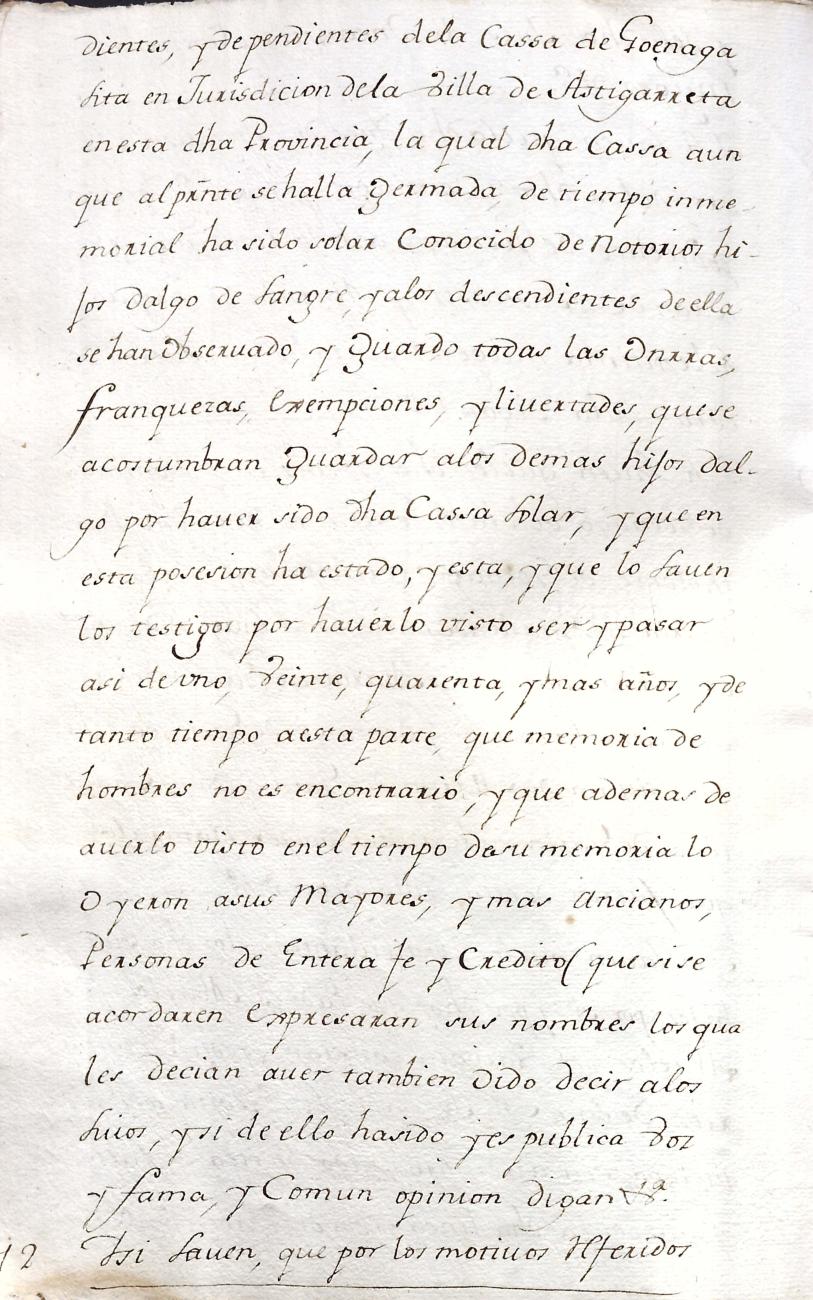 dientes, y dependientes dela Cassa de Goenaga
sita en Jurisdicion dela Villa de Astigarreta
en esta dha Provincia, la qual dha Cassa aun
que al prñte se halla Yermada, de tiempo inme-
morial ha sido solar Conocido de Notorios hi-
jos dalgo de sangre, y alos descendientes de ella
se han Observado, y Guardo todas las Onrras,
franquezas, Exempciones, y livertades, que se
acostumbran Guardar alos demas hijos dal-
go por haver sido dha Cassa solar, y que en
esta posesion ha estado, y esta, y que lo saven
los testigos por haverlo visto ser y pasar
asi de uno, Veinte, quarenta, y mas años, y de
tanto tiempo a esta parte, que memoria de
hombres no es encontrario, y que ademas de
averlo visto en el tiempo de su memoria lo
Oyeron asus Mayores, y mas Ancianos,
Personas de Entera fe y Credito (que si se
acordaren Expresaran sus nombres los qua
les decian aver tambien Oido decir alos
suios, y si de ello ha sido y es publica Voz
y fama, y Comun opinion digan &a.
12 Ysi saven, que por los motivos Rferidos